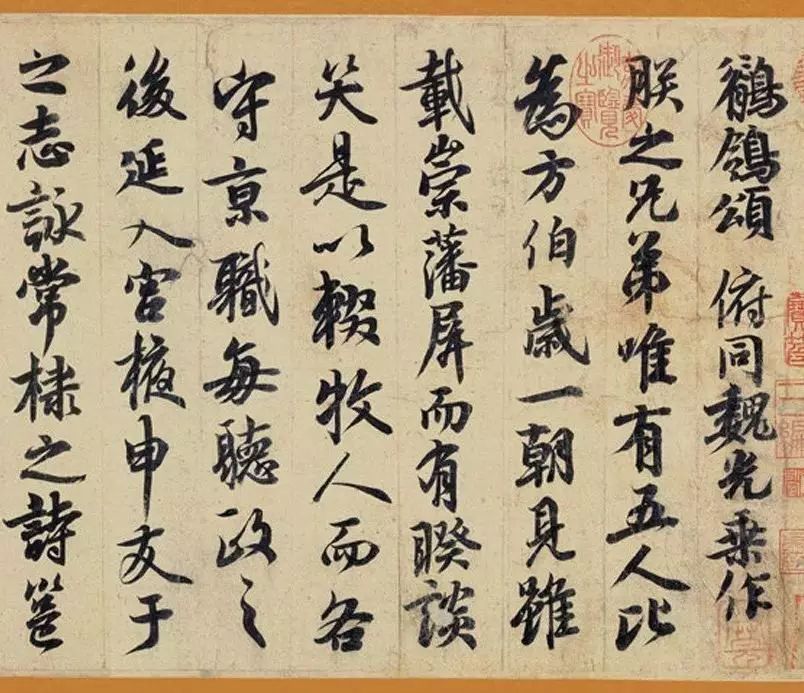 鶺鴒頌 俯同魏光乘作
朕之兄弟唯有五人比
為方伯歲一朝見雖
載崇藩屏而有暌談
笑是以輟牧人而各
守京職每聽政之
後延入宮掖申友于
之志詠常棣之詩邕
御覽
之寶